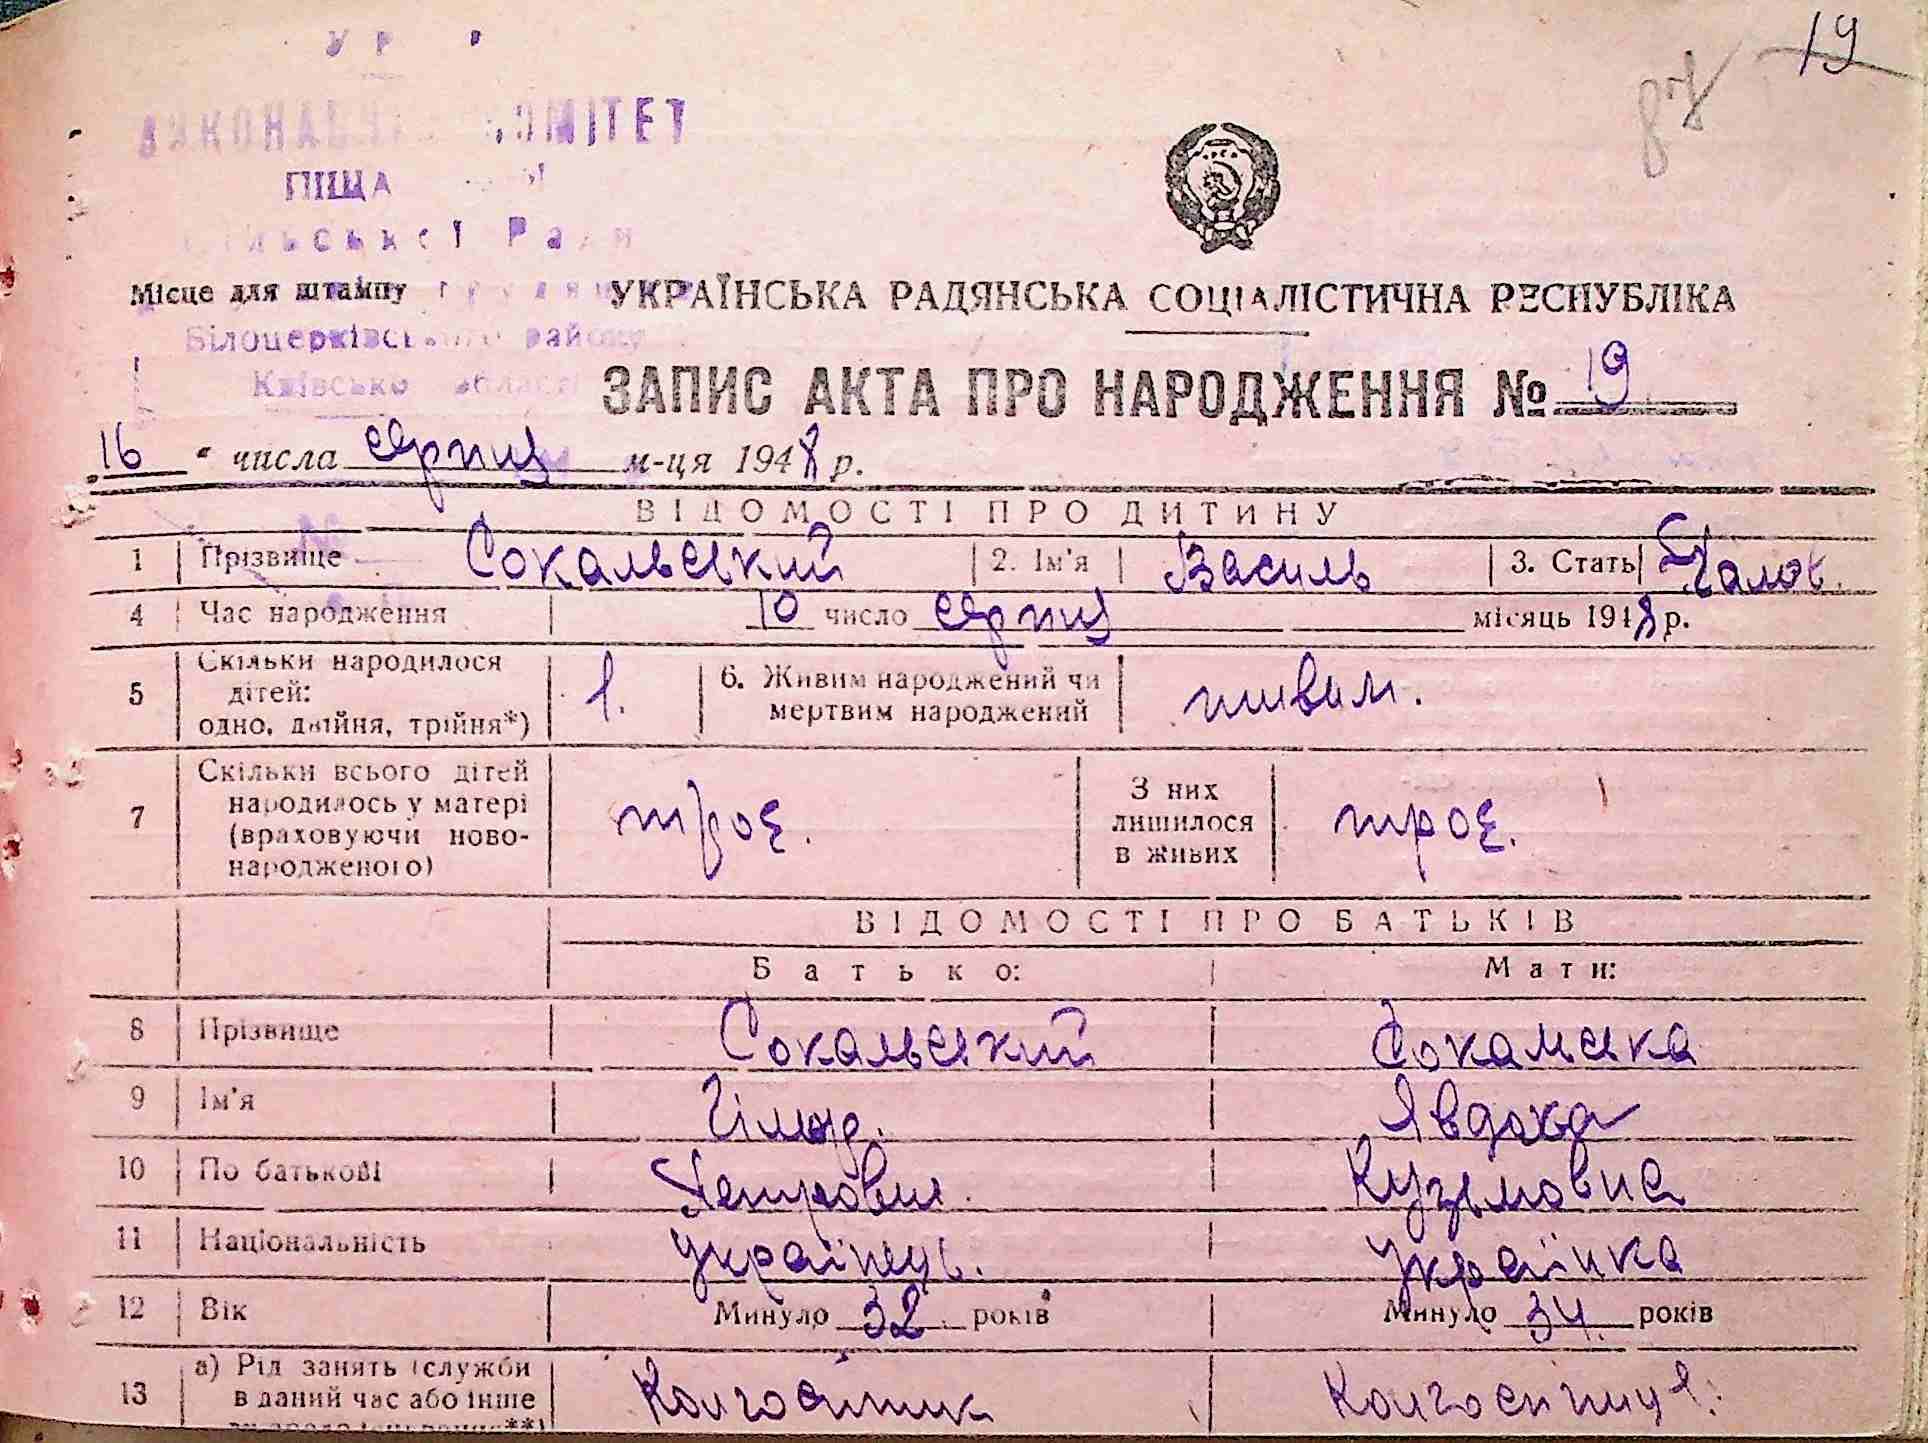 19
87
ВИКОНАВЧ КОМІТЕТ
ПІЩА
сільської Ради
Місце для штампу
УКРАЇНСЬКА РАДЯНСЬКА СОЦІАЛІСТИЧНА РЕСПУБЛІКА
Білоцерківського району
Київсько області
ЗАПИС АКТА ПРО НАРОДЖЕННЯ № 19
"16" числа серпня м-ця 1948 р.
ВІДОМОСТІ ПРО ДИТИНУ
1 Прізвище Сокальський 2. Ім'я Василь 3. Стать Чолов.
4 Час народження 10 число серпня місяць 1948 р.
5 Скільки народилося дітей: одно, двійня, трійня*) 1. 6. Живим народжений чи мертвим народжений живим.
7 Скільки всього дітей народилось у матері (враховуючи новонародженого) троє. З них лишилося в живих троє.
ВІДОМОСТІ ПРО БАТЬКІВ
Батько: Мати:
8 Прізвище Сокальський Сокальська
9 Ім'я Явдоха
10 По батькові Петрович. Кузьмовна
11 Національність українець. Українка
12 Вік Минуло 32 років Минуло 34. років
13 а) Рід занять (служби в даний час або інше Колгоспник Колгоспниця.